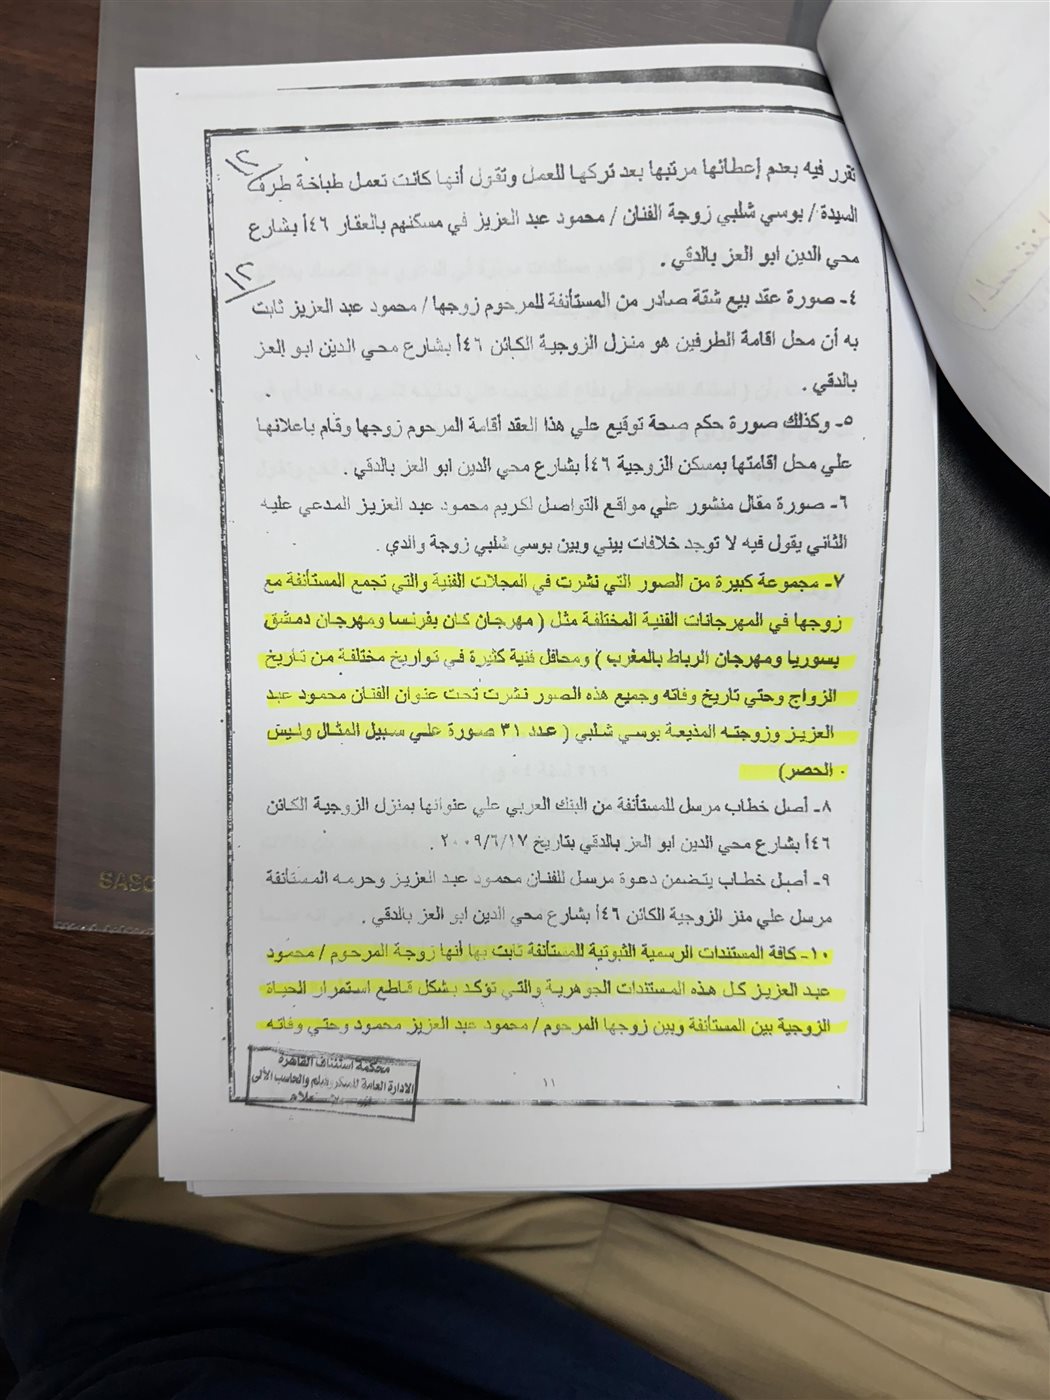 ١٢
تقرر فيه بعدم إعطائها مرتبها بعد تركها للعمل وتقول أنها كانت تعمل طباخة طرف
السيدة / بوسي شلبي زوجة الفنان / محمود عبد العزيز في مسكنهم بالعقار ٤٦أ بشارع
محي الدين ابو العز بالدقي .
١٢
٤- صورة عقد بيع شقة صادر من المستأنفة للمرحوم زوجها / محمود عبد العزيز ثابت
به أن محل اقامة الطرفين هو منزل الزوجية الكائن ٤٦أ بشارع محي الدين ابو العز
بالدقي .
٥- وكذلك صورة حكم صحة توقيع علي هذا العقد أقامة المرحوم زوجها وقام باعلانها
علي محل اقامتها بمسكن الزوجية ٤٦أ بشارع محي الدين ابو العز بالدقي .
٦- صورة مقال منشور علي مواقع التواصل لكريم محمود عبد العزيز المدعي عليه
الثاني يقول فيه لا توجد خلافات بيني وبين بوسي شلبي زوجة والدي .
٧- مجموعة كبيرة من الصور التي نشرت في المجلات الفنية والتي تجمع المستأنفة مع
زوجها في المهرجانات الفنية المختلفة مثل ( مهرجان كان بفرنسا ومهرجان دمشق
بسوريا ومهرجان الرباط بالمغرب ) ومحافل فنية كثيرة في تواريخ مختلفة من تاريخ
الزواج وحتي تاريخ وفاته وجميع هذه الصور نشرت تحت عنوان الفنان محمود عبد
العزيز وزوجته المذيعة بوسي شلبي ( عدد ٣١ صورة علي سبيل المثال وليس
الحصر) .
٨- أصل خطاب مرسل للمستأنفة من البنك العربي علي عنوانها بمنزل الزوجية الكائن
٤٦أ بشارع محي الدين ابو العز بالدقي بتاريخ ٢٠٠٩/٦/١٧ .
٩- أصل خطاب يتضمن دعوة مرسل للفنان محمود عبد العزيز وحرمه المستأنفة
مرسل علي منز الزوجية الكائن ٤٦أ بشارع محي الدين ابو العز بالدقي .
١٠- كافة المستندات الرسمية الثبوتية للمستأنفة ثابت بها أنها زوجة المرحوم / محمود
عبد العزيز كل هذه المستندات الجوهرية والتي تؤكد بشكل قاطع استمرار الحياة
الزوجية بين المستأنفة وبين زوجها المرحوم / محمود عبد العزيز محمود وحتي وفاته
محكمة استئناف القاهرة
الادارة العامة للميكروفيلم والحاسب الآلى
١١